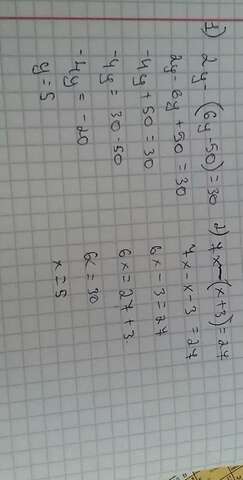 1) 2y-(6y-50)=30
2y-6y+50=30
-4y+50=30
-4y=30-50
-4y=-20
y=5
2) 7x-(x+3)=27
7x-x-3=27
6x-3=27
6x=27+3
6x=30
x=5